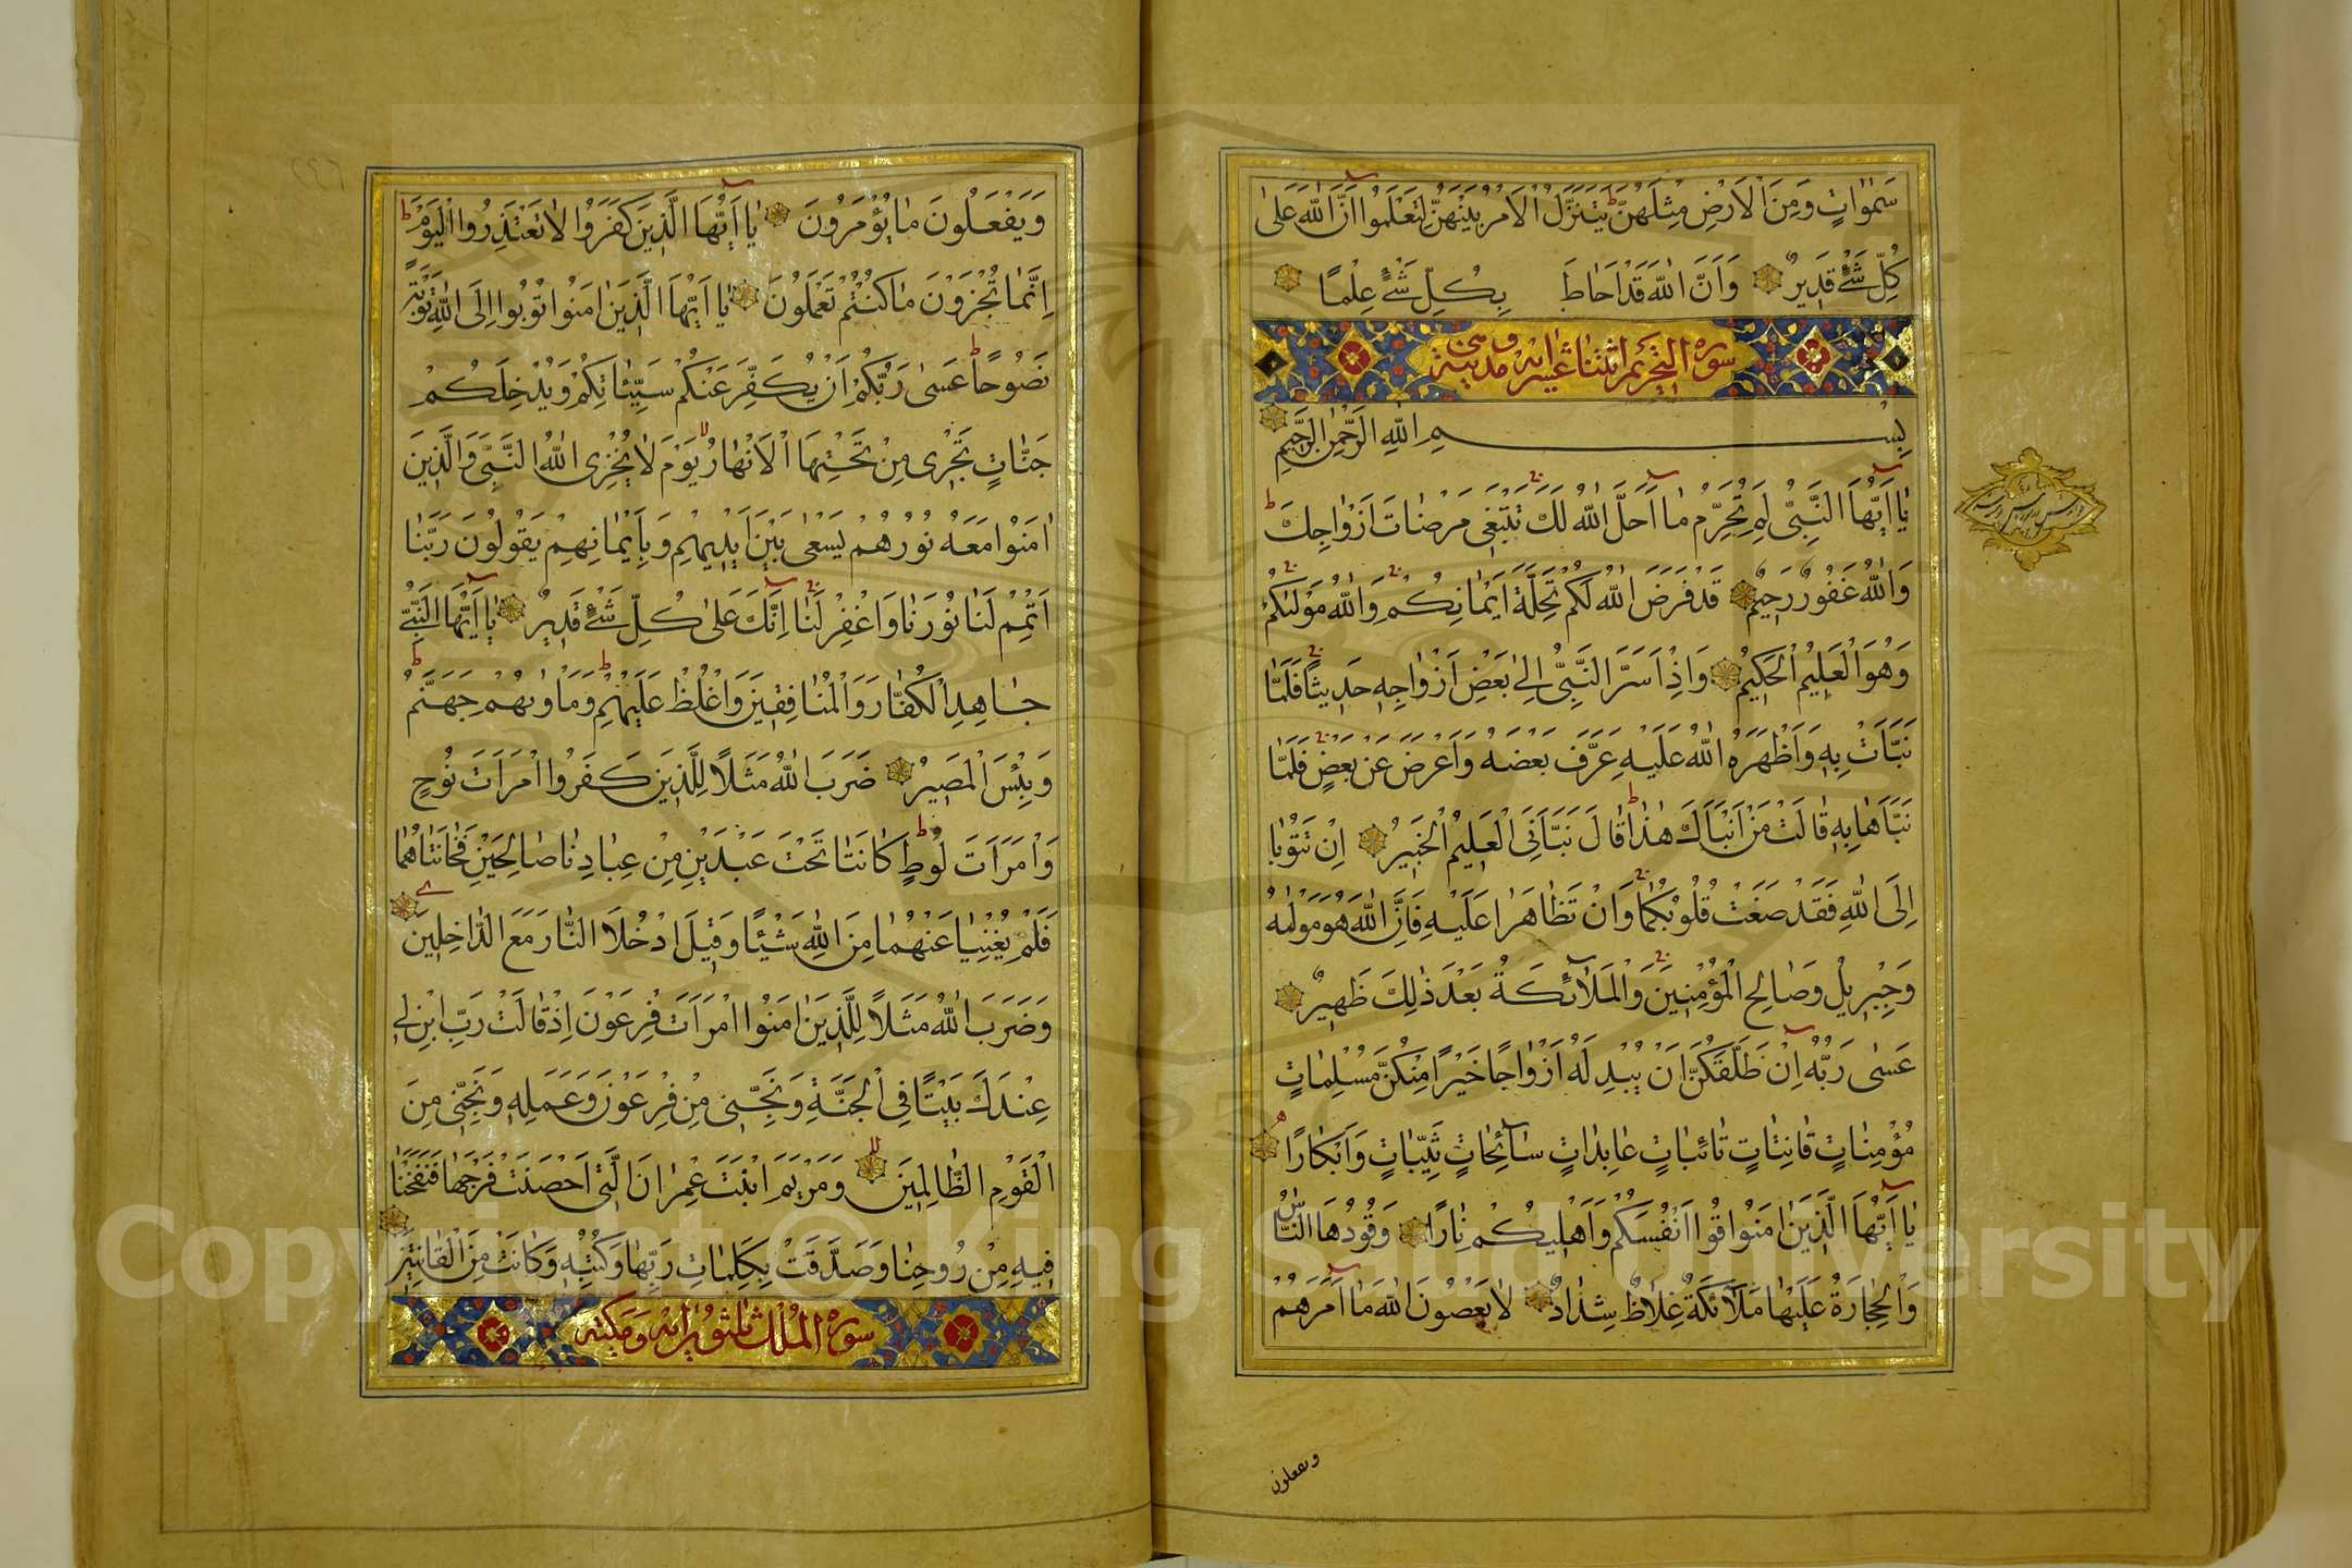 سَمٰوَاتٍ وَمِنَ الْاَرْضِ مِثْلَهُنَّ يَتَنَزَّلُ الْاَمْرُ بَيْنَهُنَّ لِتَعْلَمُوا اَنَّ اللّٰهَ عَلٰى
كُلِّ شَىْءٍ قَدِيرٌ وَاَنَّ اللّٰهَ قَدْ اَحَاطَ بِكُلِّ شَىْءٍ عِلْمًا
سورة التحريم اثنتا عشر اية وهى مدنية
بِسْمِ اللّٰهِ الرَّحْمٰنِ الرَّحِيمِ
يَا اَيُّهَا النَّبِىُّ لِمَ تُحَرِّمُ مَا اَحَلَّ اللّٰهُ لَكَ تَبْتَغِى مَرْضَاتَ اَزْوَاجِكَ
وَاللّٰهُ غَفُورٌ رَحِيمٌ قَدْ فَرَضَ اللّٰهُ لَكُمْ تَحِلَّةَ اَيْمَانِكُمْ وَاللّٰهُ مَوْلٰيكُمْ
وَهُوَ الْعَلِيمُ الْحَكِيمُ وَاِذْ اَسَرَّ النَّبِىُّ اِلٰى بَعْضِ اَزْوَاجِهِ حَدِيثًا فَلَمَّا
نَبَّاَتْ بِهِ وَاَظْهَرَهُ اللّٰهُ عَلَيْهِ عَرَّفَ بَعْضَهُ وَاَعْرَضَ عَنْ بَعْضٍ فَلَمَّا
نَبَّاَهَا بِهِ قَالَتْ مَنْ اَنْبَاَكَ هٰذَا قَالَ نَبَّاَنِىَ الْعَلِيمُ الْخَبِيرُ اِنْ تَتُوبَا
اِلَى اللّٰهِ فَقَدْ صَغَتْ قُلُوبُكُمَا وَاِنْ تَظَاهَرَا عَلَيْهِ فَاِنَّ اللّٰهَ هُوَ مَوْلٰيهُ
وَجِبْرِيلُ وَصَالِحُ الْمُؤْمِنِينَ وَالْمَلٰٓائِكَةُ بَعْدَ ذٰلِكَ ظَهِيرٌ
عَسٰى رَبُّهُ اِنْ طَلَّقَكُنَّ اَنْ يُبْدِلَهُ اَزْوَاجًا خَيْرًا مِنْكُنَّ مُسْلِمَاتٍ
مُؤْمِنَاتٍ قَانِتَاتٍ تَائِبَاتٍ عَابِدَاتٍ سَائِحَاتٍ ثَيِّبَاتٍ وَاَبْكَارًا
يَا اَيُّهَا الَّذِينَ اٰمَنُوا قُوا اَنْفُسَكُمْ وَاَهْلِيكُمْ نَارًا وَقُودُهَا النَّاسُ
وَالْحِجَارَةُ عَلَيْهَا مَلٰٓائِكَةٌ غِلَاظٌ شِدَادٌ لَا يَعْصُونَ اللّٰهَ مَا اَمَرَهُمْ
ويفعلون
وَيَفْعَلُونَ مَا يُؤْمَرُونَ يَا اَيُّهَا الَّذِينَ كَفَرُوا لَا تَعْتَذِرُوا الْيَوْمَ
اِنَّمَا تُجْزَوْنَ مَا كُنْتُمْ تَعْمَلُونَ يَا اَيُّهَا الَّذِينَ اٰمَنُوا تُوبُوا اِلَى اللّٰهِ تَوْبَةً
نَصُوحًا عَسٰى رَبُّكُمْ اَنْ يُكَفِّرَ عَنْكُمْ سَيِّئَاتِكُمْ وَيُدْخِلَكُمْ
جَنَّاتٍ تَجْرِى مِنْ تَحْتِهَا الْاَنْهَارُ يَوْمَ لَا يُخْزِى اللّٰهُ النَّبِىَّ وَالَّذِينَ
اٰمَنُوا مَعَهُ نُورُهُمْ يَسْعٰى بَيْنَ اَيْدِيهِمْ وَبِاَيْمَانِهِمْ يَقُولُونَ رَبَّنَا
اَتْمِمْ لَنَا نُورَنَا وَاغْفِرْ لَنَا اِنَّكَ عَلٰى كُلِّ شَىْءٍ قَدِيرٌ يَا اَيُّهَا النَّبِىُّ
جَاهِدِ الْكُفَّارَ وَالْمُنَافِقِينَ وَاغْلُظْ عَلَيْهِمْ وَمَاْوٰيهُمْ جَهَنَّمُ
وَبِئْسَ الْمَصِيرُ ضَرَبَ اللّٰهُ مَثَلًا لِلَّذِينَ كَفَرُوا امْرَاَتَ نُوحٍ
وَامْرَاَتَ لُوطٍ كَانَتَا تَحْتَ عَبْدَيْنِ مِنْ عِبَادِنَا صَالِحَيْنِ فَخَانَتَاهُمَا
فَلَمْ يُغْنِيَا عَنْهُمَا مِنَ اللّٰهِ شَيْئًا وَقِيلَ ادْخُلَا النَّارَ مَعَ الدَّاخِلِينَ
وَضَرَبَ اللّٰهُ مَثَلًا لِلَّذِينَ اٰمَنُوا امْرَاَتَ فِرْعَوْنَ اِذْ قَالَتْ رَبِّ ابْنِ لِى
عِنْدَكَ بَيْتًا فِى الْجَنَّةِ وَنَجِّنِى مِنْ فِرْعَوْنَ وَعَمَلِهِ وَنَجِّنِى مِنَ
الْقَوْمِ الظَّالِمِينَ وَمَرْيَمَ ابْنَتَ عِمْرَانَ الَّتِى اَحْصَنَتْ فَرْجَهَا فَنَفَخْنَا
فِيهِ مِنْ رُوحِنَا وَصَدَّقَتْ بِكَلِمَاتِ رَبِّهَا وَكُتُبِهِ وَكَانَتْ مِنَ الْقَانِتِينَ
سورة الملك ثلثون اية ومكية
Copyright © King Saud University